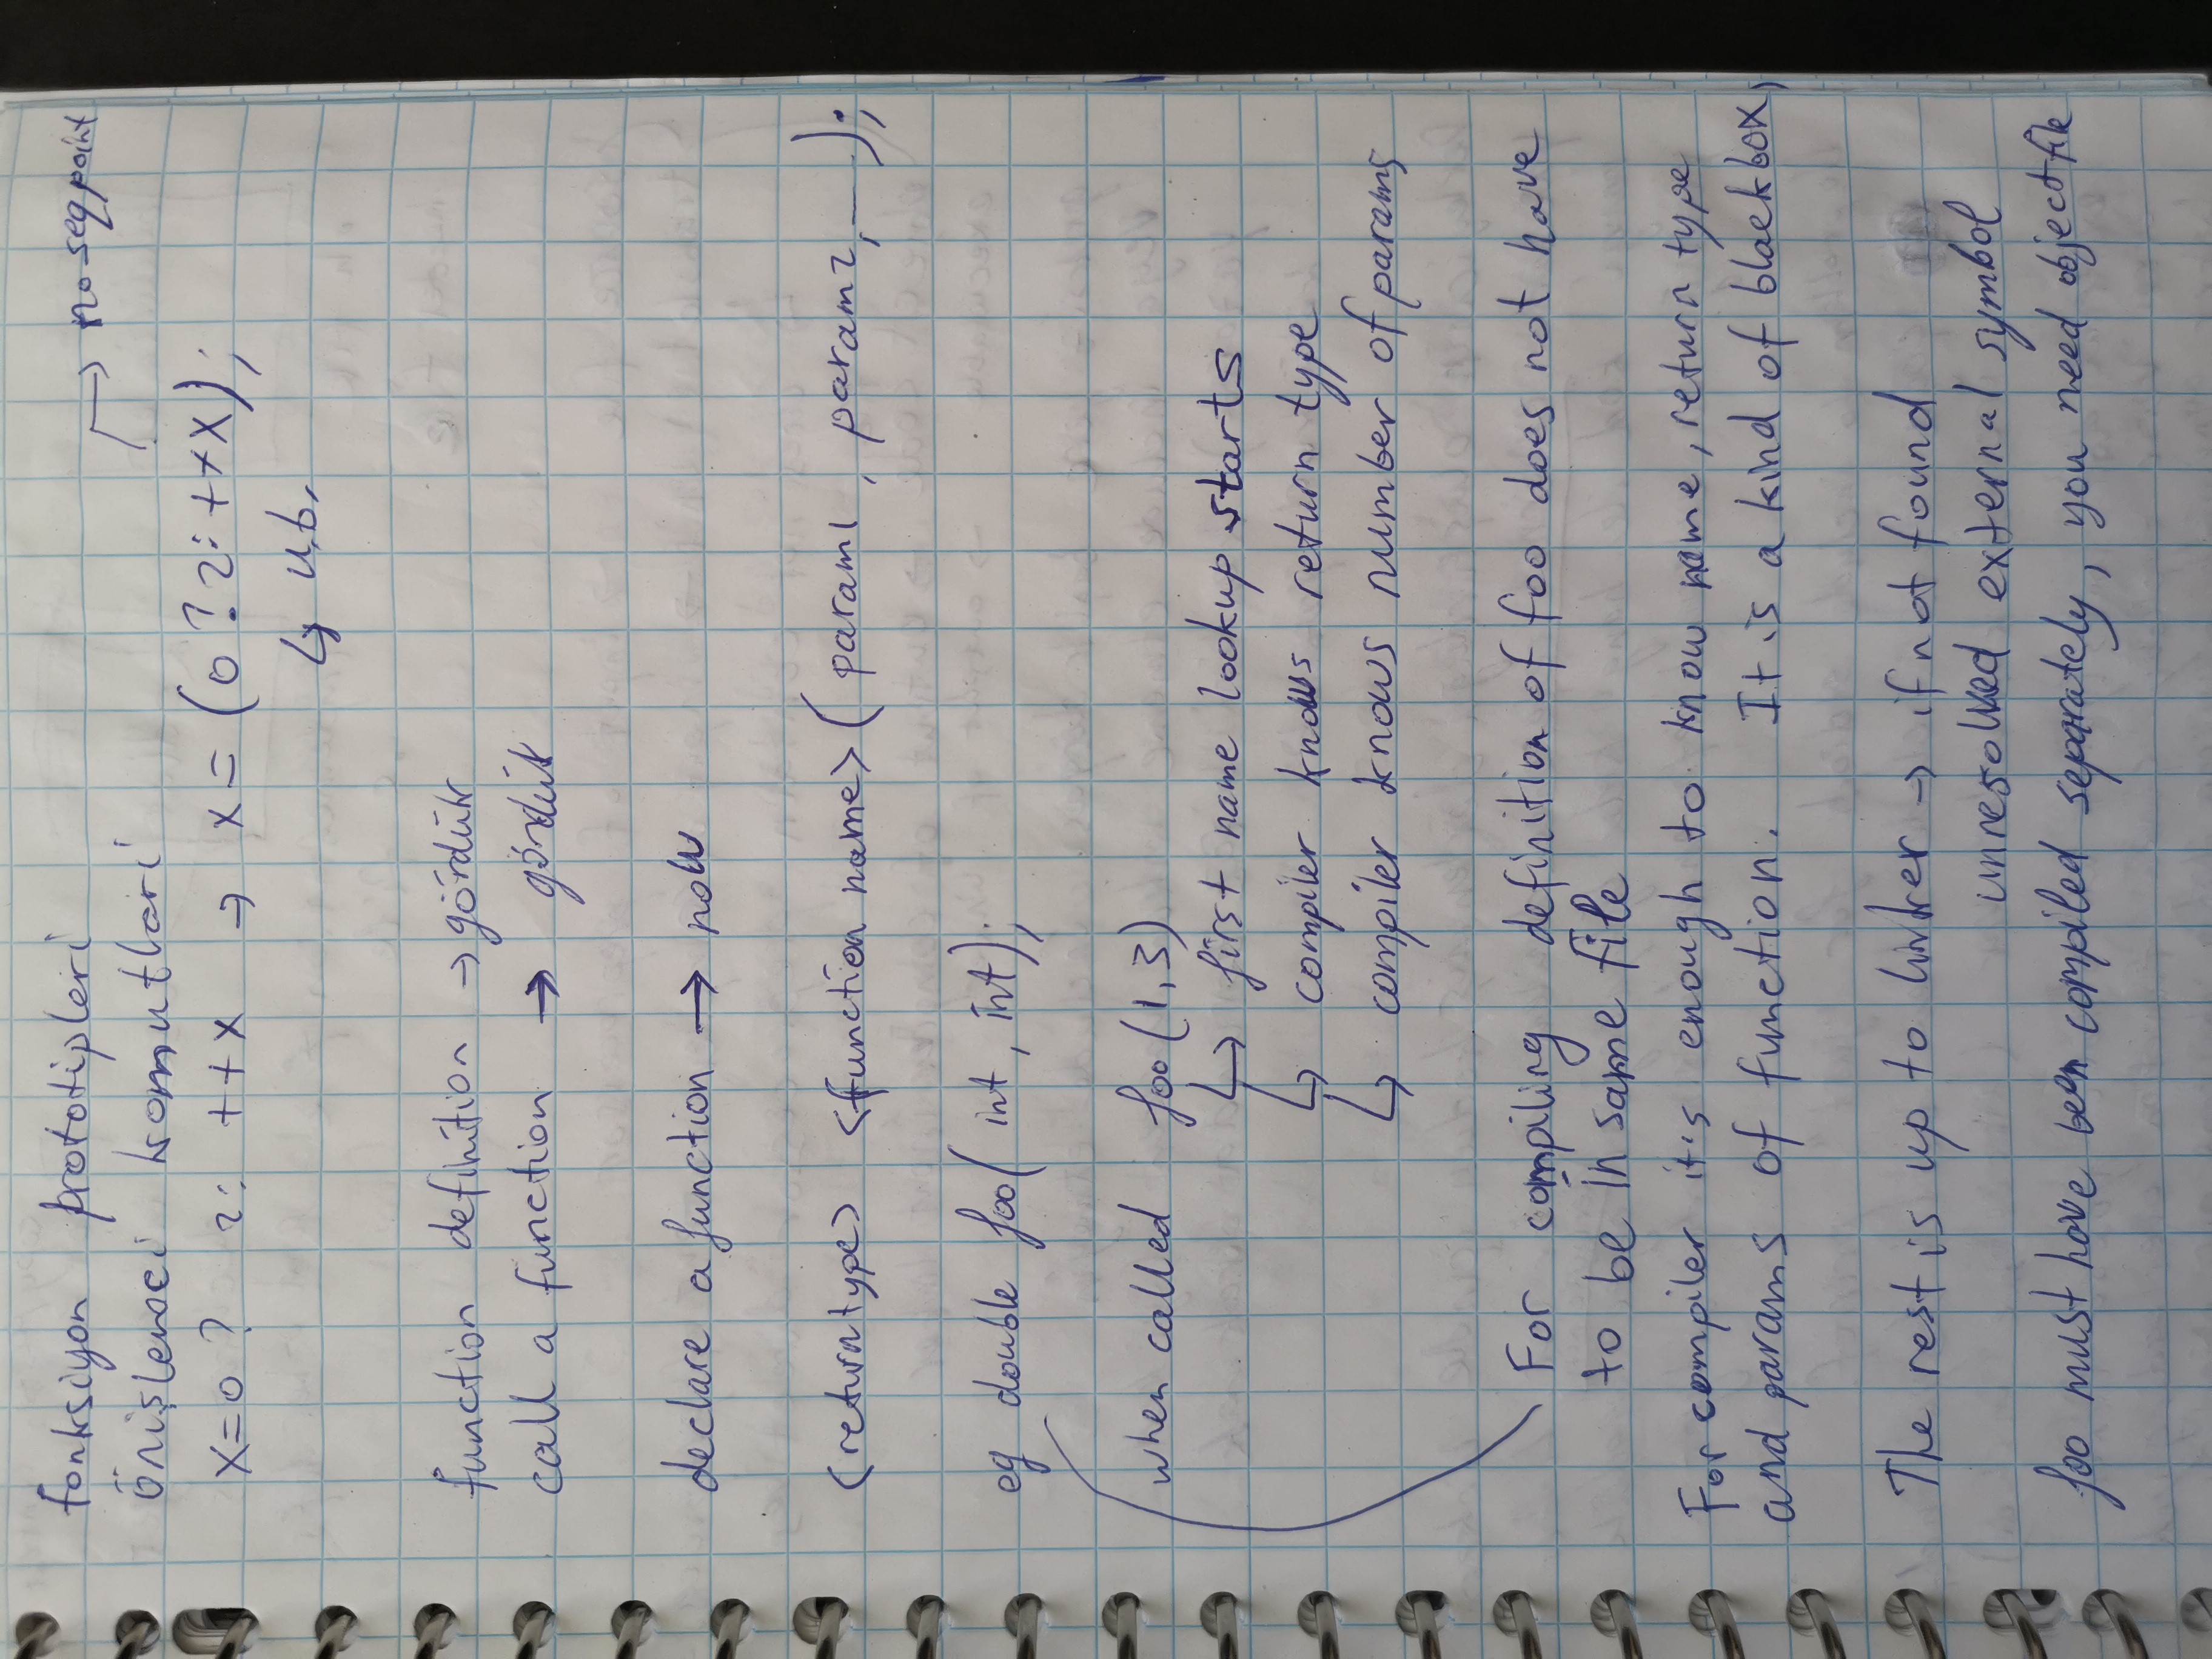 fonksiyon prototipleri
önişlemci komutları
→ no seqpoint
x=0 ? 2: ++x → x = (0 ? 2: ++x);
↳ u.b.
function definition → gördük
call a function → gördük
declare a function → now
<returntype> <function name> ( param1 , param2, __ );
eg double foo( int , int );
when called foo(1,3)
↳ first name lookup starts
↳ compiler knows return type
↳ compiler knows number of params
For compiling definition of foo does not have
to be in same file
For compiler it's enough to know name, return type
and params of function. It is a kind of blackbox,
The rest is up to linker → if not found
unresolved external symbol
foo must have been compiled separately, you need object file